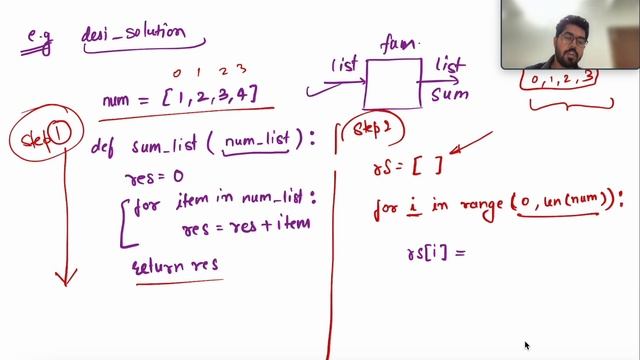 e.g desi_solution
0 1 2 3
num = [1,2,3,4]
fun.
list
list
sum
0,1,2,3
step 1
def sum_list(num_list):
res=0
for item in num_list:
res = res+item
return res
Step 2
rs = [ ]
for i in range(0, len(num)):
rs[i] =